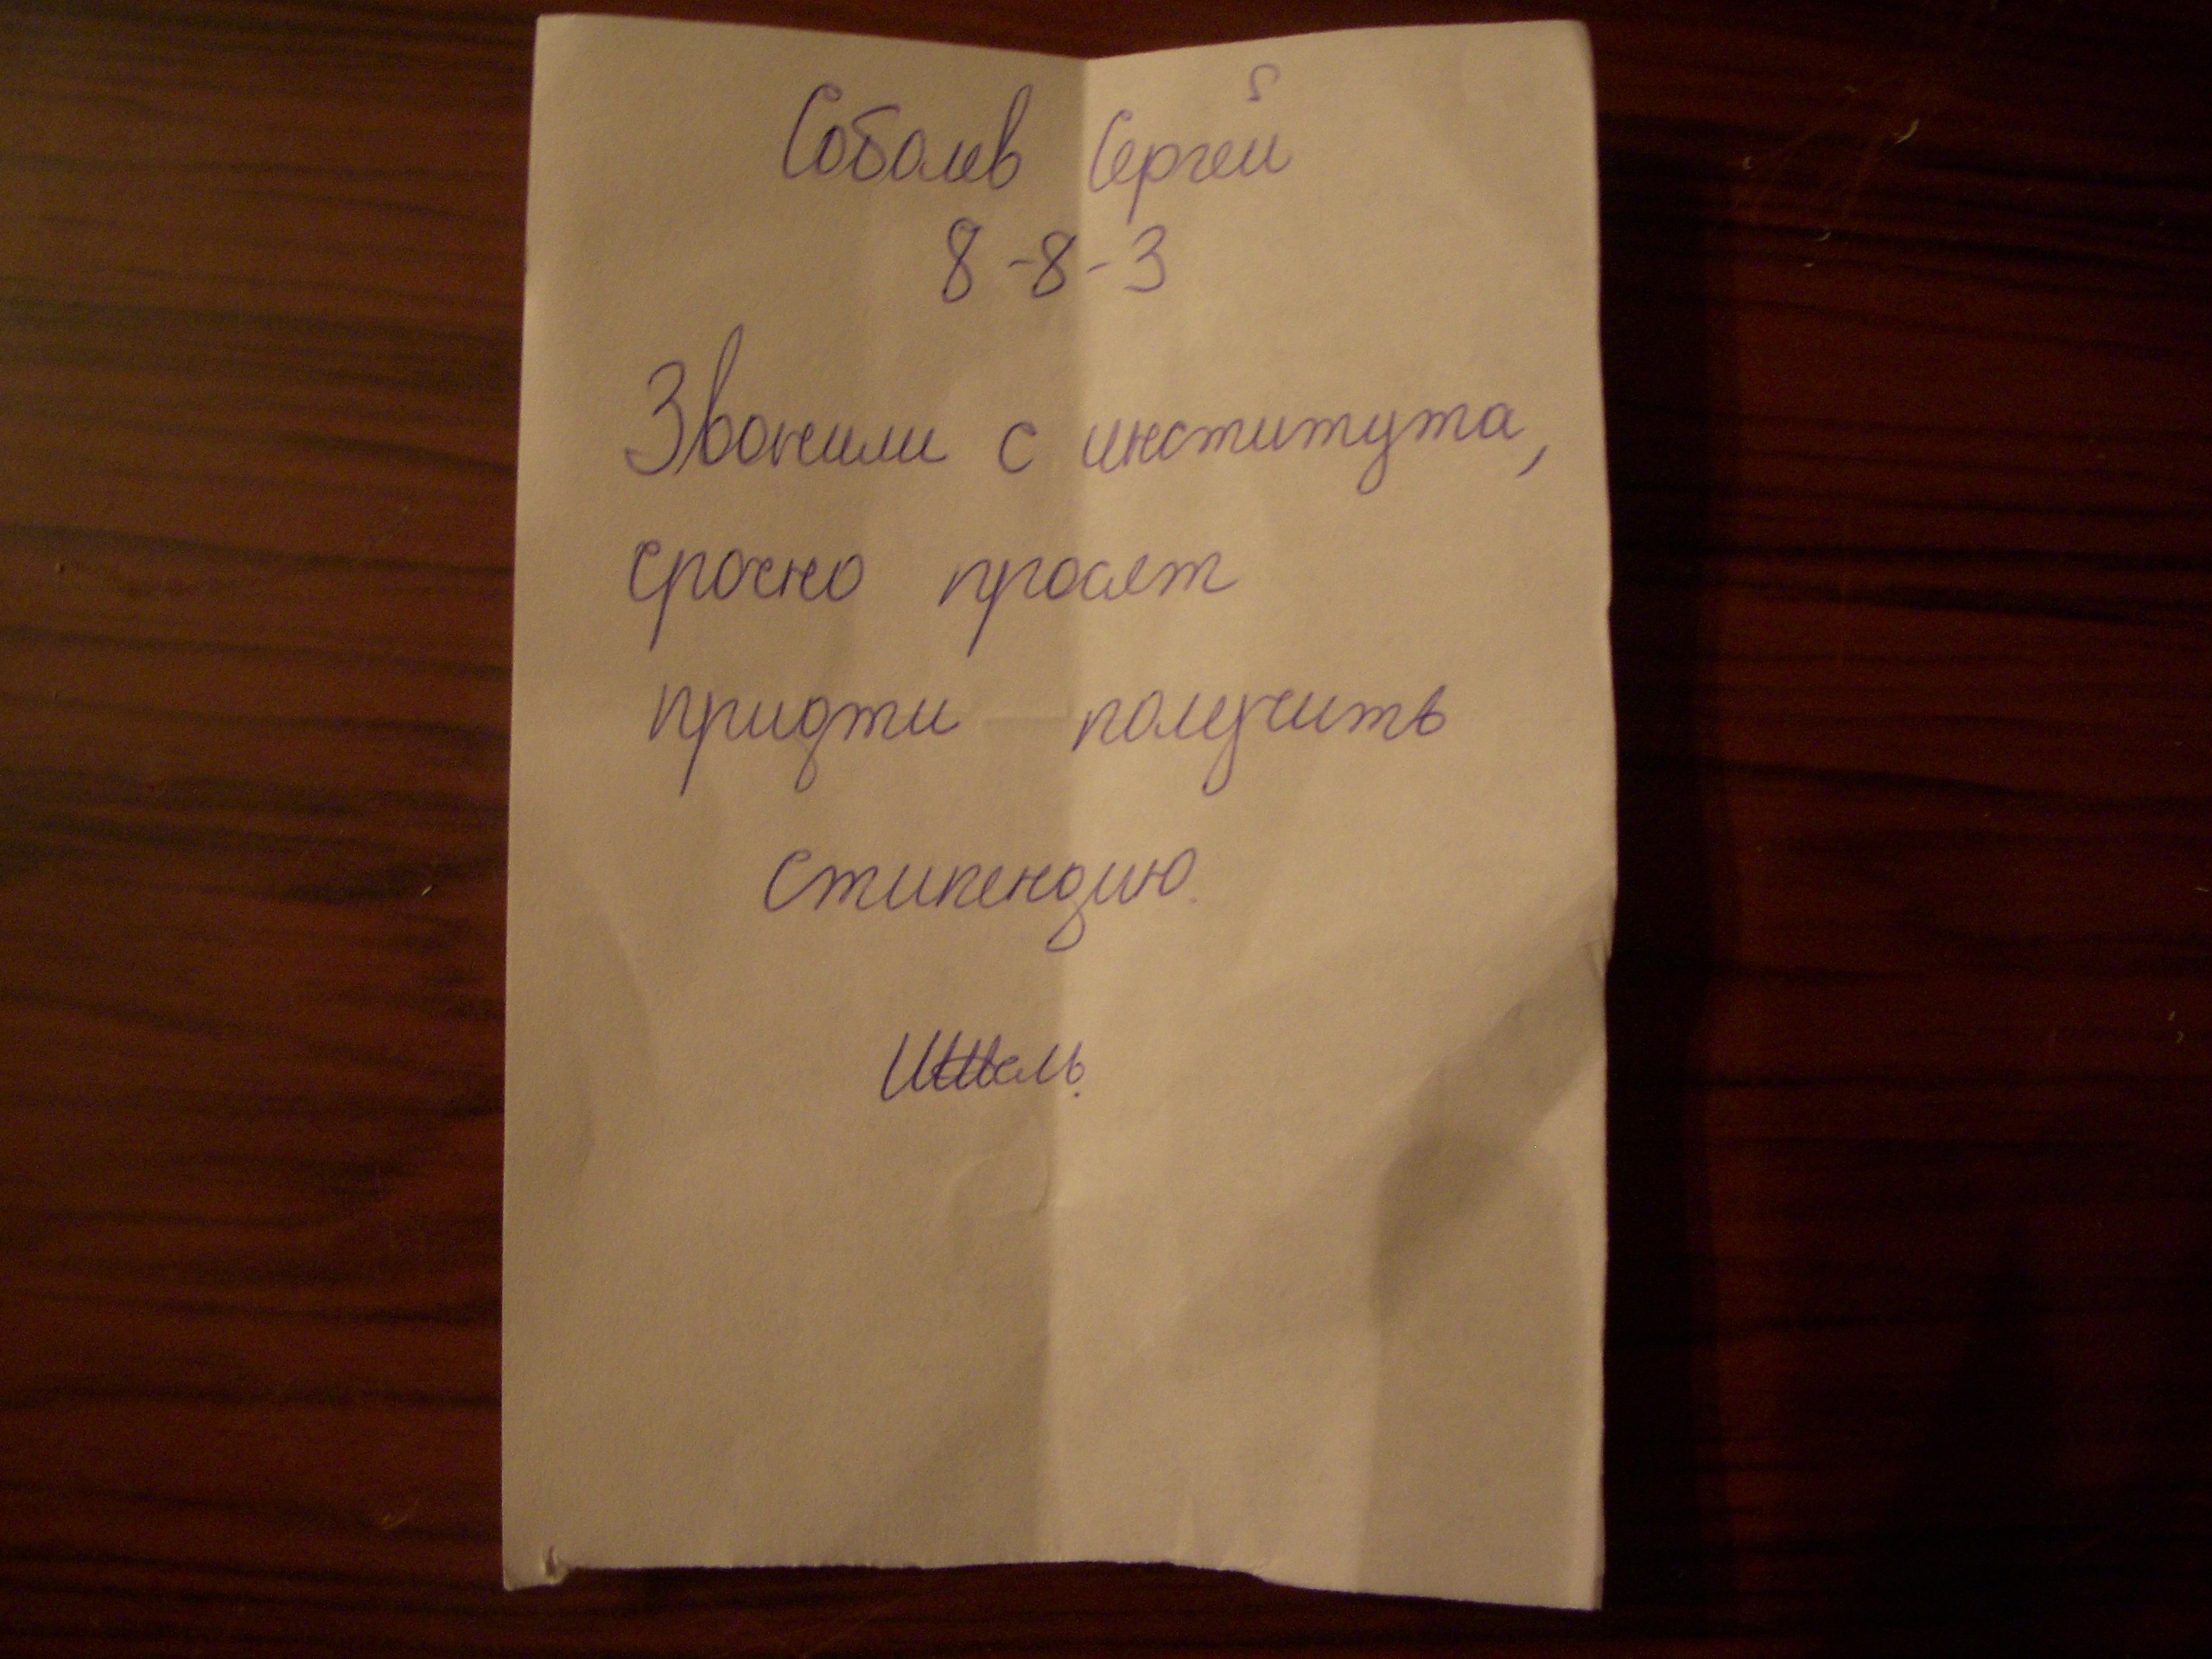 Соболев Сергей
8-8-3
Звонили с института,
срочно просят
придти получить
стипендию.